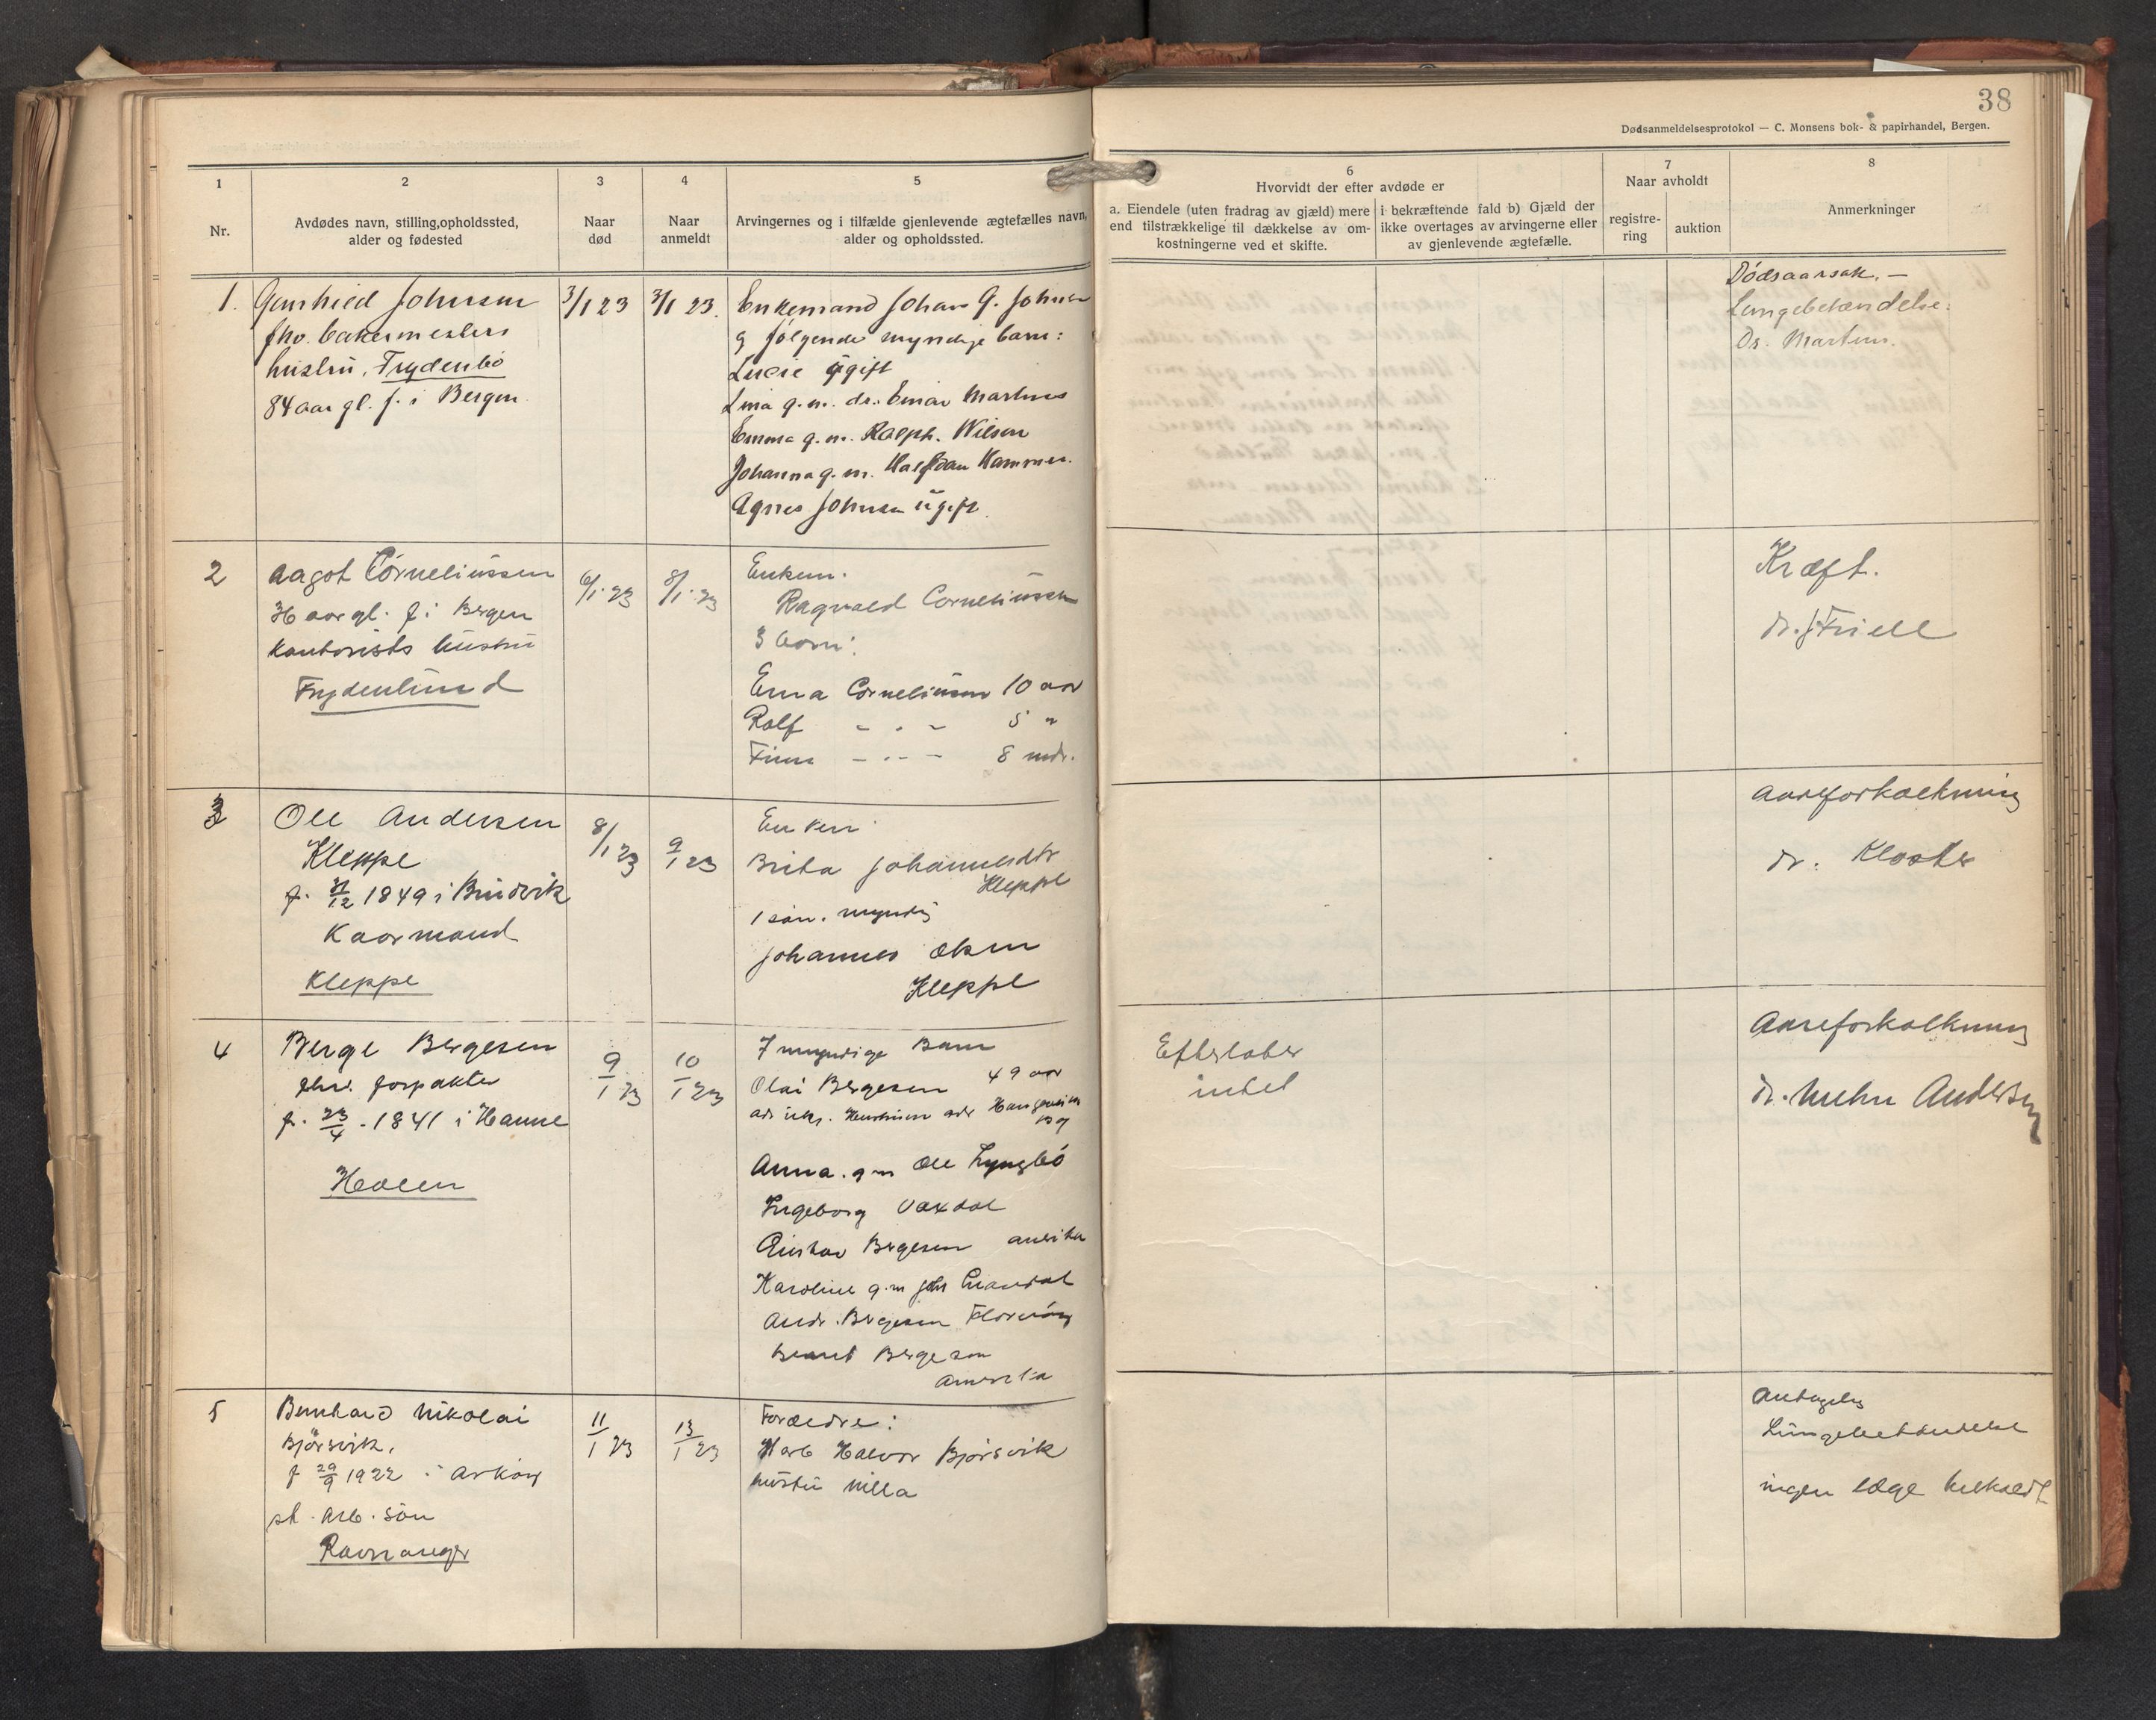 38
Dødsanmeldelsesprotokol — C. Monsens bok- & papirhandel, Bergen.
1
Nr.
2
Avdødes navn, stilling, opholdssted,
alder og fødested
3
Naar
død
4
Naar
anmeldt
5
Arvingernes og i tilfælde gjenlevende ægtefælles navn,
alder og opholdssted.
6
Hvorvidt der efter avdøde er
a. Eiendele (uten fradrag av gjæld) mere
end tilstrækkelige til dækkelse av om-
kostningerne ved et skifte.
i bekræftende fald b) Gjæld der
ikke overtages av arvingerne eller
av gjenlevende ægtefælle.
7
Naar avholdt
registre-
ring
auktion
8
Anmerkninger
1.
Johnsen
fhv. bakermesters
hustru, Frydenbö
84 aar gl. f. i Bergen
3/1 23
3/1 23.
Enkemand Johan G. Johnsen
g følgende myndige barn:
Lucie ugift
Lina g.m. dr. Einar Martens
Emma g.m. Ralph. Wilson
Johanna g.m. Halfdan Hammer.
Agnes Johnsen ugift.
Dödsaarsak. —
Lungebetændelse.
Dr. Martens.
2
Aagot Corneliussen
aar gl. f. i Bergen
kontorists hustru
Frydenlund
6/1 23
8/1 23
Enkem.
Ragvald Corneliussen
3 barn:
Erna Corneliussen 10 aar
Rolf - . - 5 "
Finn - .. - 8 mdr.
Kræft.
dr. J Friele
3
Ole Andersen
Kleppe
f. 31/12 1849 i
Kaarmand
Kleppe
8/1 23
9/1 23
Enken
Brita Johannesdtr
Kleppe
1 sön. myndig
Johannes Olsen
Kleppe
Aareforkalkning
dr. Kloster
4
Berge Bergesen
fhv. forpakter
f. 23/4 - 1841 i Hamre
Holen
9/1 23
10/1 23
7 myndige Barn
Olai Bergesen 49 aar
Anna. g m Ole Lyngbö
Ingeborg Vaxdal
Gustav Bergesen amerika
Karoline g.m
Andr. Bergesen
Bergesen
Amerika
Efterlater
intet
Aareforkalkning
dr. Andersen
5
Bernhard Nikolai
Björsvik.
f 29/9 1922 i Asköy
arb. sön
Ravnanger
11/1 23
13/1 23
Forældre:
Halvor Björsvik
hustru Milla
Antagelig
Lungebetændelse
ingen læge tilkaldt